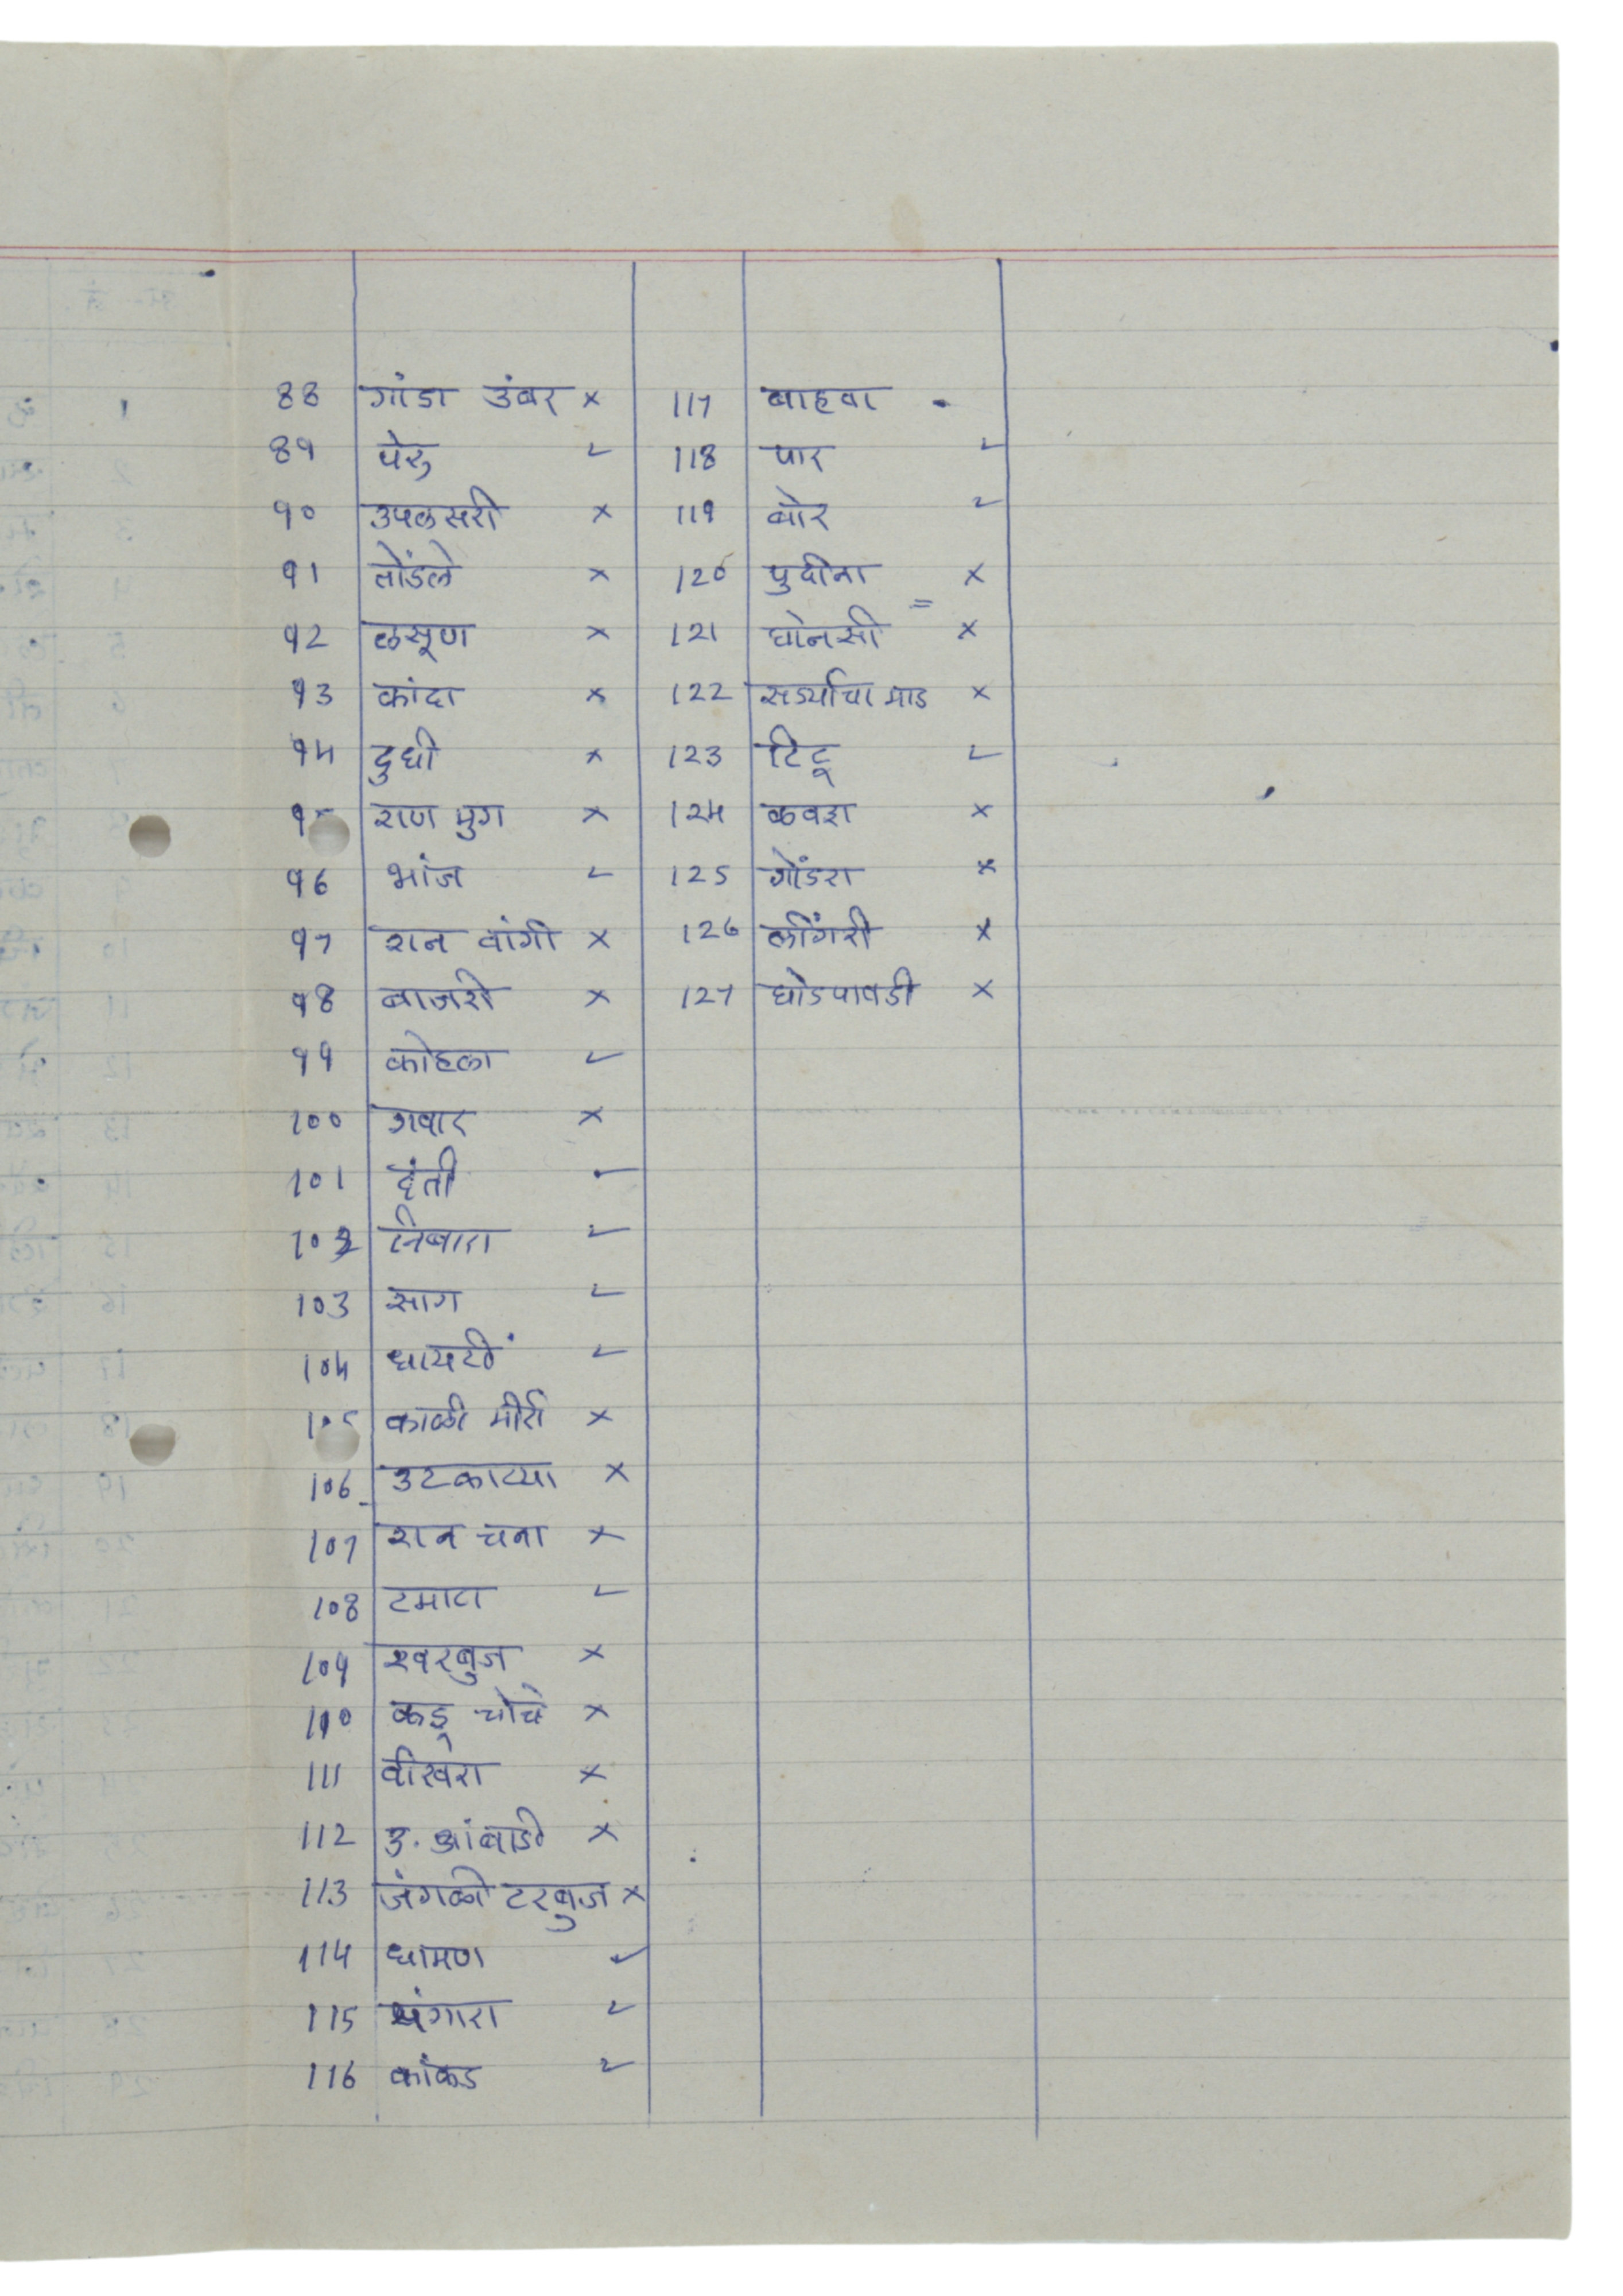 88 गांडा उंबर ×
89 पेरु ✓
90 उपलसरी ×
91 तोंडले ×
92 लसूण ×
93 कांदा ×
94 दुधी ×
95 राण मुग ×
96 भांज ✓
97 रान वांगी ×
98 बाजरी ×
99 कोहला ✓
100 गवार ×
101 दंती ✓
102 निबारा ✓
103 साग ✓
104 धायटी ✓
105 काळी मीरी ×
106 उटकाट्या ×
107 रान चना ×
108 टमाटा ✓
109 खरबुज ×
110 कडू चोचे ×
111 वीखरा ×
112 उ. आंबाडी ×
113 जंगळी टरबुज ×
114 धामण ✓
115 पंगारा ✓
116 कांकड ✓
117 बाहवा
118 पार ✓
119 बोर ✓
120 पुदीना ×
121 घोनसी ×
122 सर्ड्याचा माड ×
123 टिटू ✓
124 कवझा ×
125 गोंडरा ×
126 लींगरी ×
127 घोडपावडी ×